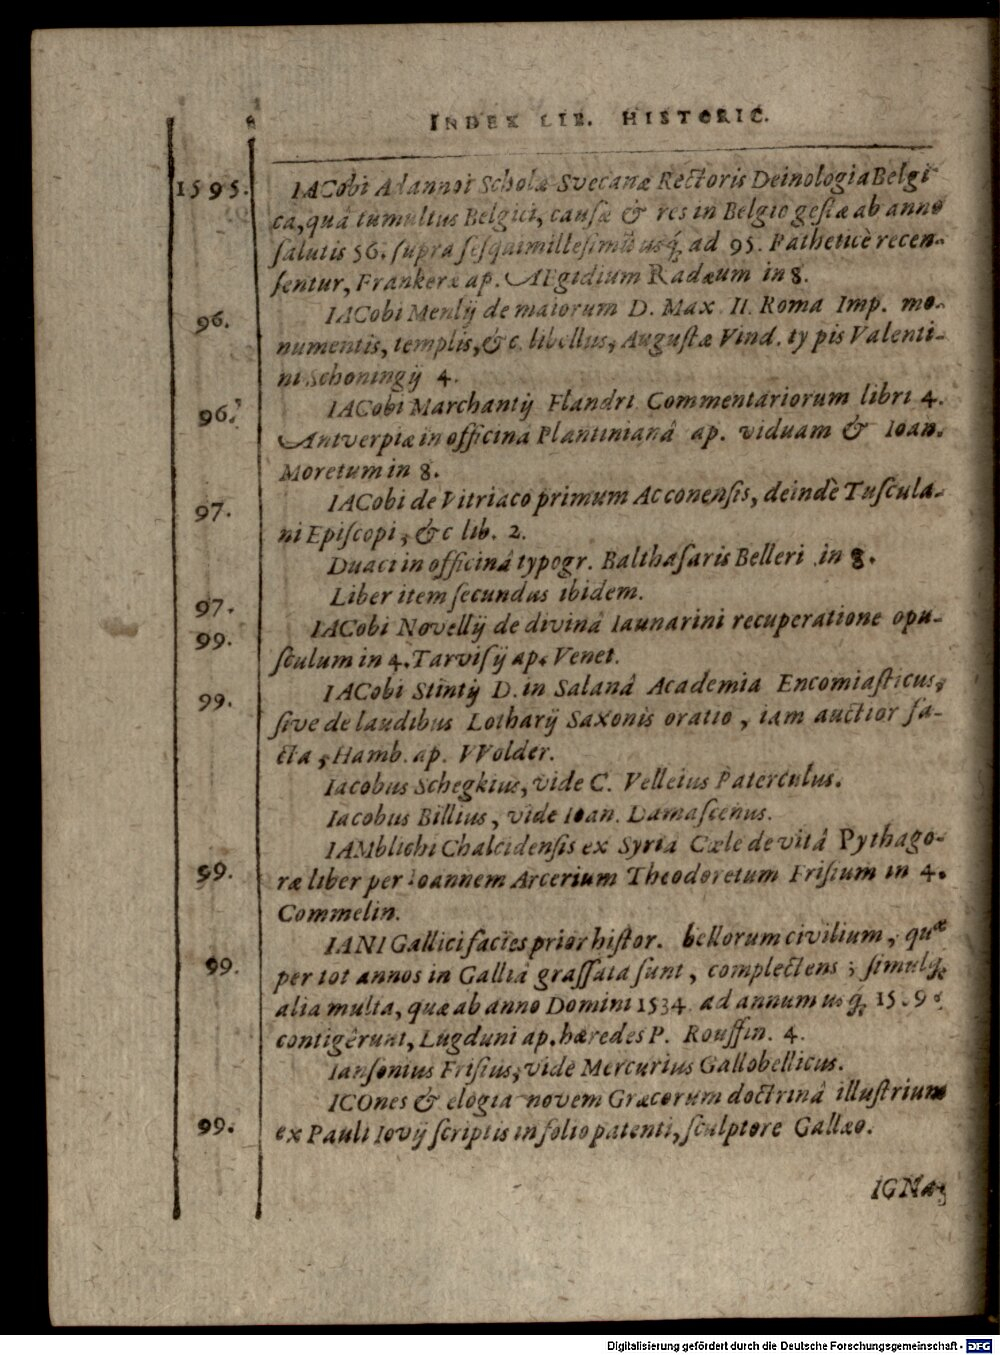 INDEX LIB. HISTORIC.
1595. IACobi Adannoi Scholæ Svecanæ Rectoris Deinologia Belgi
ca, quâ tumultus Belgici, causæ & res in Belgio gestæ ab anno
salutis 56. supra sesquimillesimū usq́; ad 95. Patheticè recen-
sentur, Frankeræ ap. AEgidium Radæum in 8.
96. IACobi Menlij de maiorum D. Max. II. Roma Imp. mo-
numentis, templis, &c. libellus, Augustæ Vind. typis Valenti-
ni Schoningij 4.
96. IACobi Marchantij Flandri Commentariorum libri 4.
Antverpiæ in officinâ Plantinianâ ap. viduam & Ioan.
Moretum in 8.
97. IACobi de Vitriaco primum Acconensis, deindè Tuscula-
ni Episcopi, &c lib. 2.
Duaci in officinâ typogr. Balthasaris Belleri in 8.
97. Liber item secundus ibidem.
99. IACobi Novellij de divinâ Iaunarini recuperatione opu-
sculum in 4. Tarvisij ap. Venet.
99. IACobi Stintij D. in Salanâ Academia Encomiasticus,
sive de laudibus Lotharij Saxonis oratio, iam auctior fa-
cta, Hamb. ap. VVolder.
Iacobus Schegkius, vide C. Velleius Paterculus.
Iacobus Billius, vide Ioan. Damascenus.
IAMblichi Chalcidensis ex Syria Cœle de vitâ Pythago-
99. ræ liber per Ioannem Arcerium Theodoretum Frisium in 4.
Commelin.
IANI Gallici facies prior histor. bellorum civilium, quæ
99. per tot annos in Galliâ grassata sunt, complectens; simulq́;
alia multa, quæ ab anno Domini 1534. ad annum usq́;
contigêrunt, Lugduni ap. hæredes P. Rouffin. 4.
Iansonius Frisius, vide Mercurius Gallobellicus.
ICOnes & elogia novem Græcorum doctrinâ illustrium
99. ex Pauli Iovij scriptis in folio patenti, sculptore Gallæo.
IGNa-
Digitalisierung gefördert durch die Deutsche Forschungsgemeinschaft - DFG